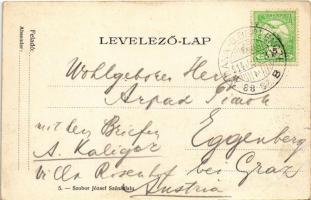 Feladó:
LEVELEZŐ-LAP
Wohlgeboren Herrn
Arpad
mit den Briefen
Eggenberg
A. Kaligar
Villa Rosenhof bei Graz
Austria
5. — Szobor József